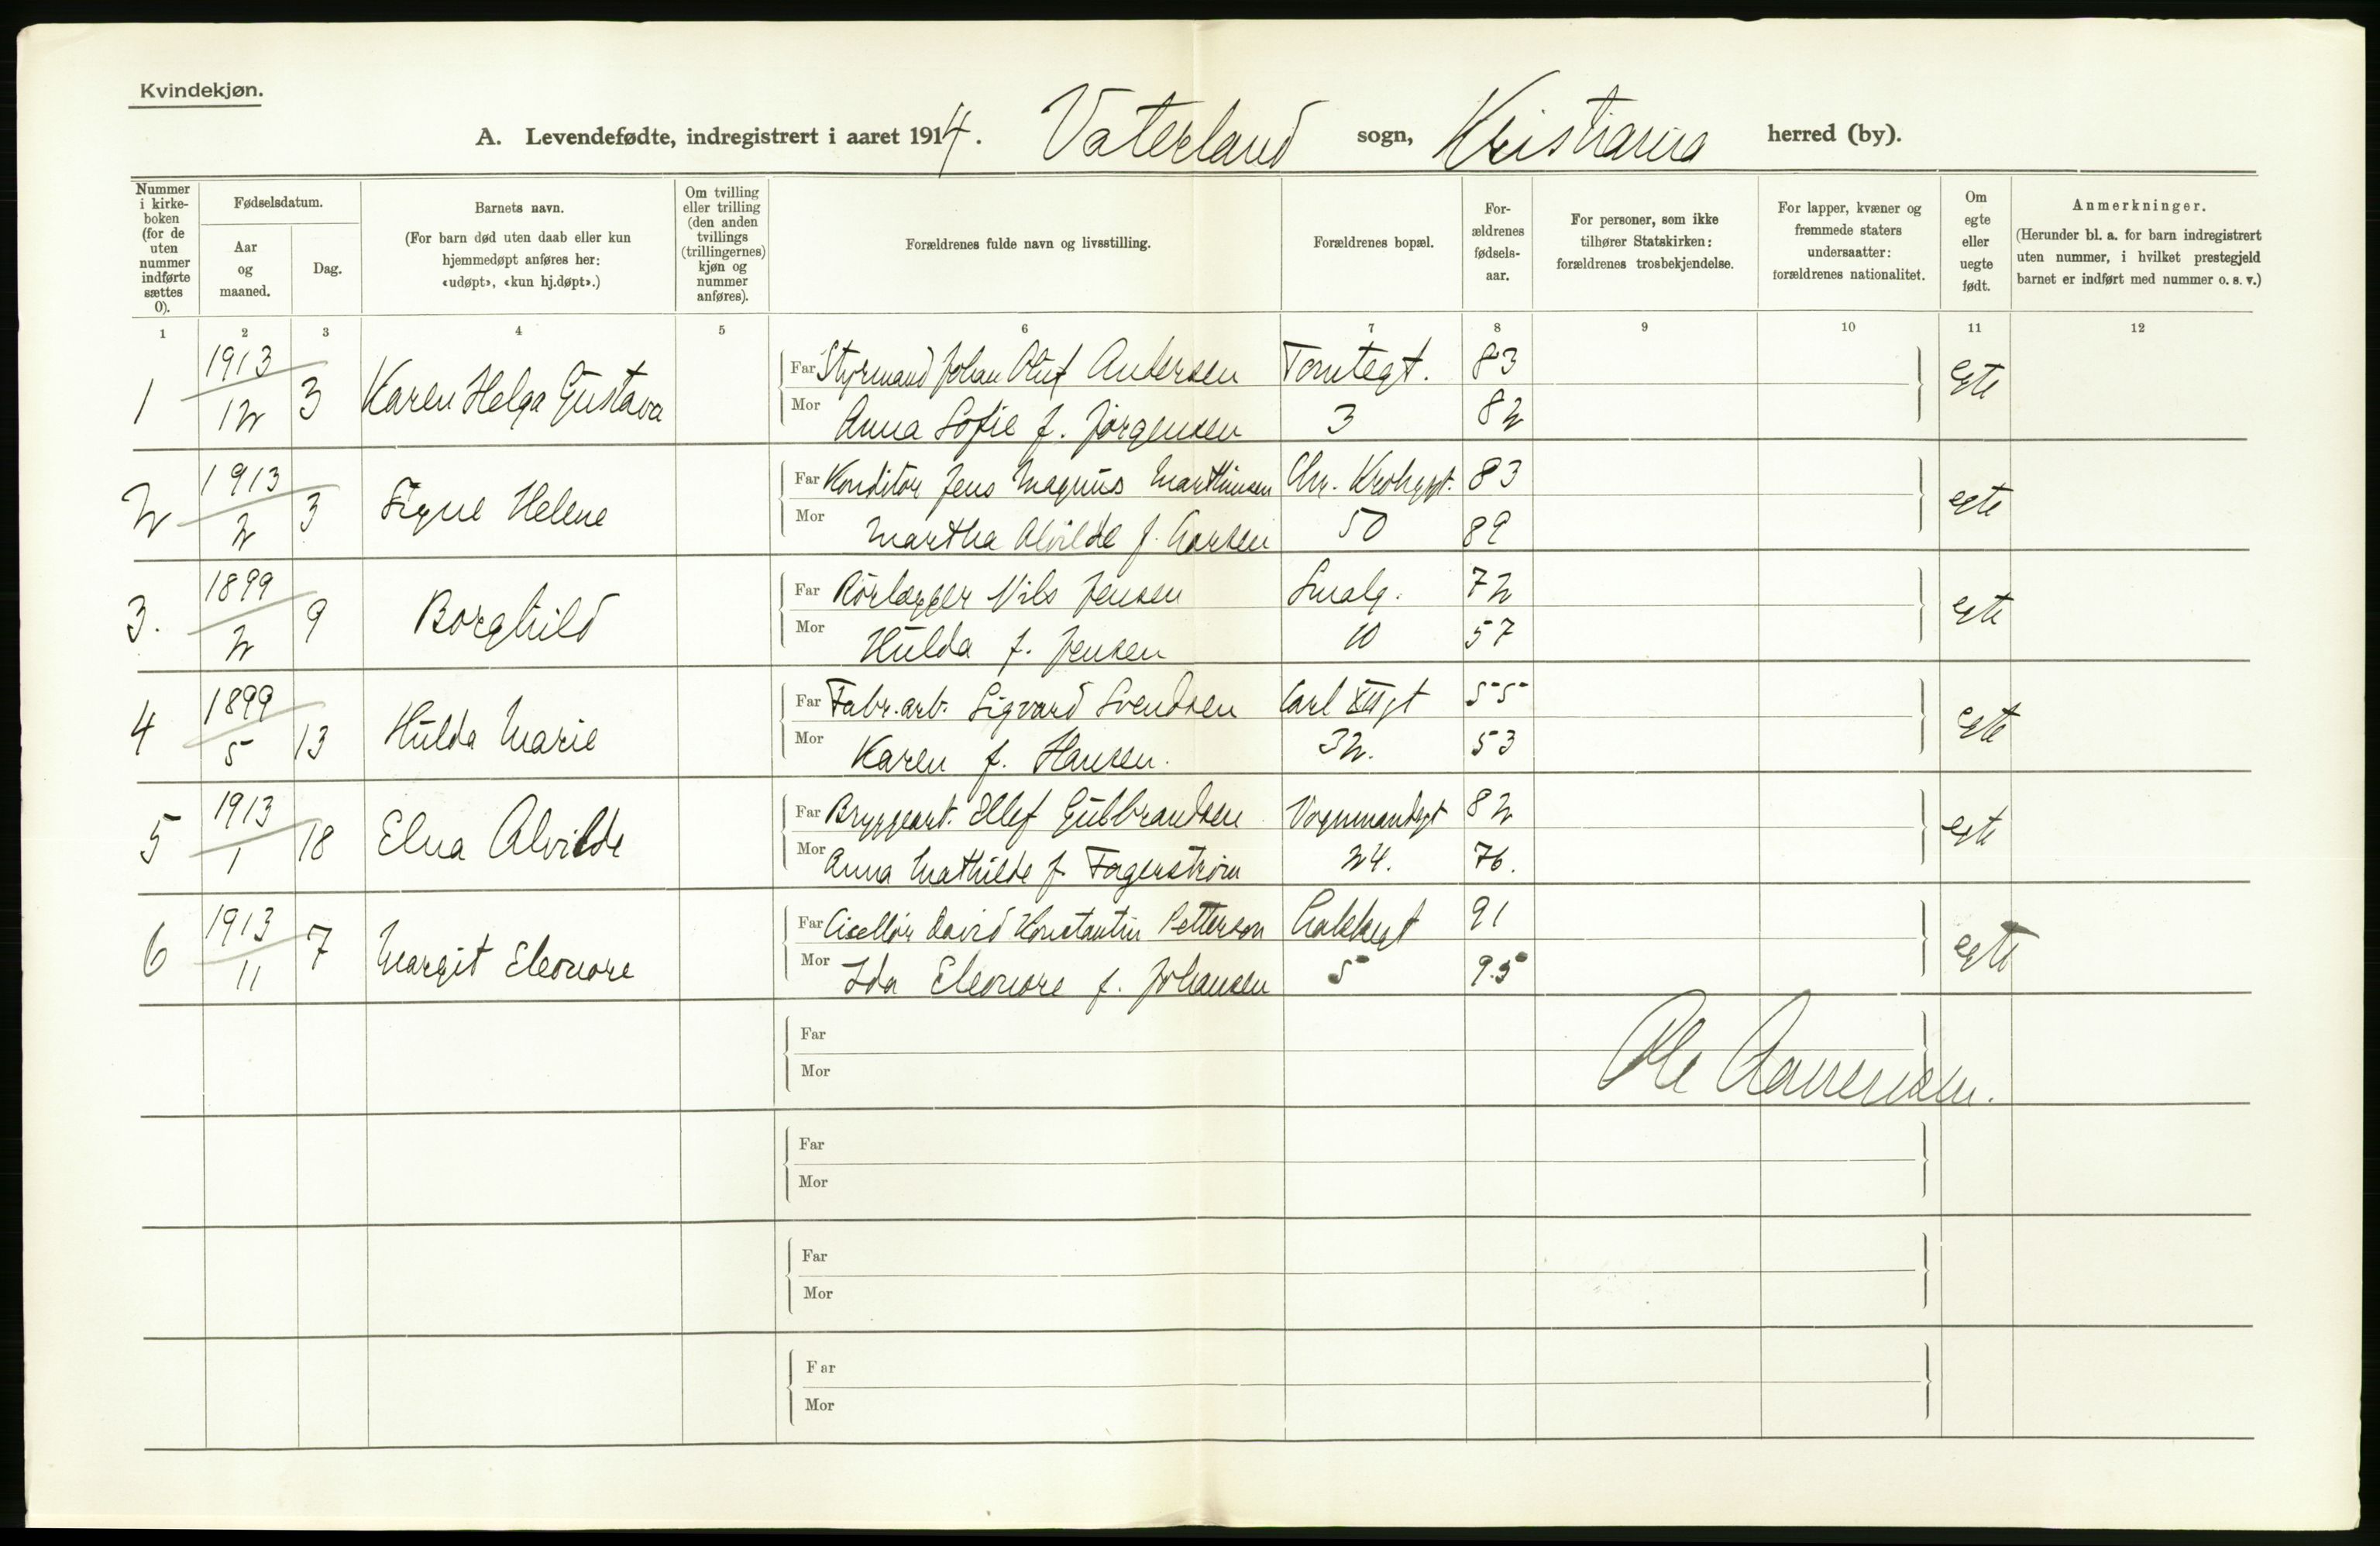 Kvindekjøn.
A. Levendefødte, indregistrert i aaret 1914. Vaterland sogn, Kristiania herred (by).
Nummer i kirke- boken (for de uten nummer indførte sættes 0).
Fødselsdatum.
Aar og maaned.
Dag.
Barnets navn.
(For barn død uten daab eller kun hjemmedøpt anføres her: «udøpt», «kun hj.døpt».)
Om tvilling eller trilling (den anden tvillings (trillingernes) kjøn og nummer anføres).
Forældrenes fulde navn og livsstilling.
Forældrenes bopæl.
For- ældrenes fødsels- aar.
For personer, som ikke tilhører Statskirken: forældrenes trosbekjendelse.
For lapper, kvæner og fremmede staters undersaatter: forældrenes nationalitet.
Om egte eller uegte født.
Anmerkninger.
(Herunder bl. a. for barn indregistrert uten nummer, i hvilket prestegjeld barnet er indført med nummer o. s. v.)
1 2 3 4 5 6 7 8 9 10 11 12
1 1913 12 3 Karen Helga Gustava Far Styrmand Johan Oluf Andersen Tomtegt. 83 egte
Mor Anna Sofie f. Jörgensen 3 82
2 1913 2 3 Signe Helene Far Konditor Jens Magnus Marthinsen Chr. Krohgsgt. 83 egte
Mor Martha Alvilde f. Larsen 50 89
3. 1899 2 9 Borghild Far Rörlægger Nils Jensen Smalg. 72 egte
Mor Hulda f. Jensen 10 57
4 1899 5 13 Hulda Marie Far Fabr.arb. Sigvard Svendsen Carl XII gt 55 egte
Mor Karen f. Hansen. 32. 53
5 1913 1 18 Elna Alvilde Far Bryggearb. Ellef Gulbrandsen Vognmandsgt 82 egte
Mor Anna Mathilde f. Fagerström 24. 76.
6 1913 11 7 Margit Eleonore Far Cisellör David Konstantin Petterson Lakkegt 91 egte
Mor Ida Eleonore f. Johansen 5 95
Far
Mor
Ole
Far
Mor
Far
Mor
Far
Mor